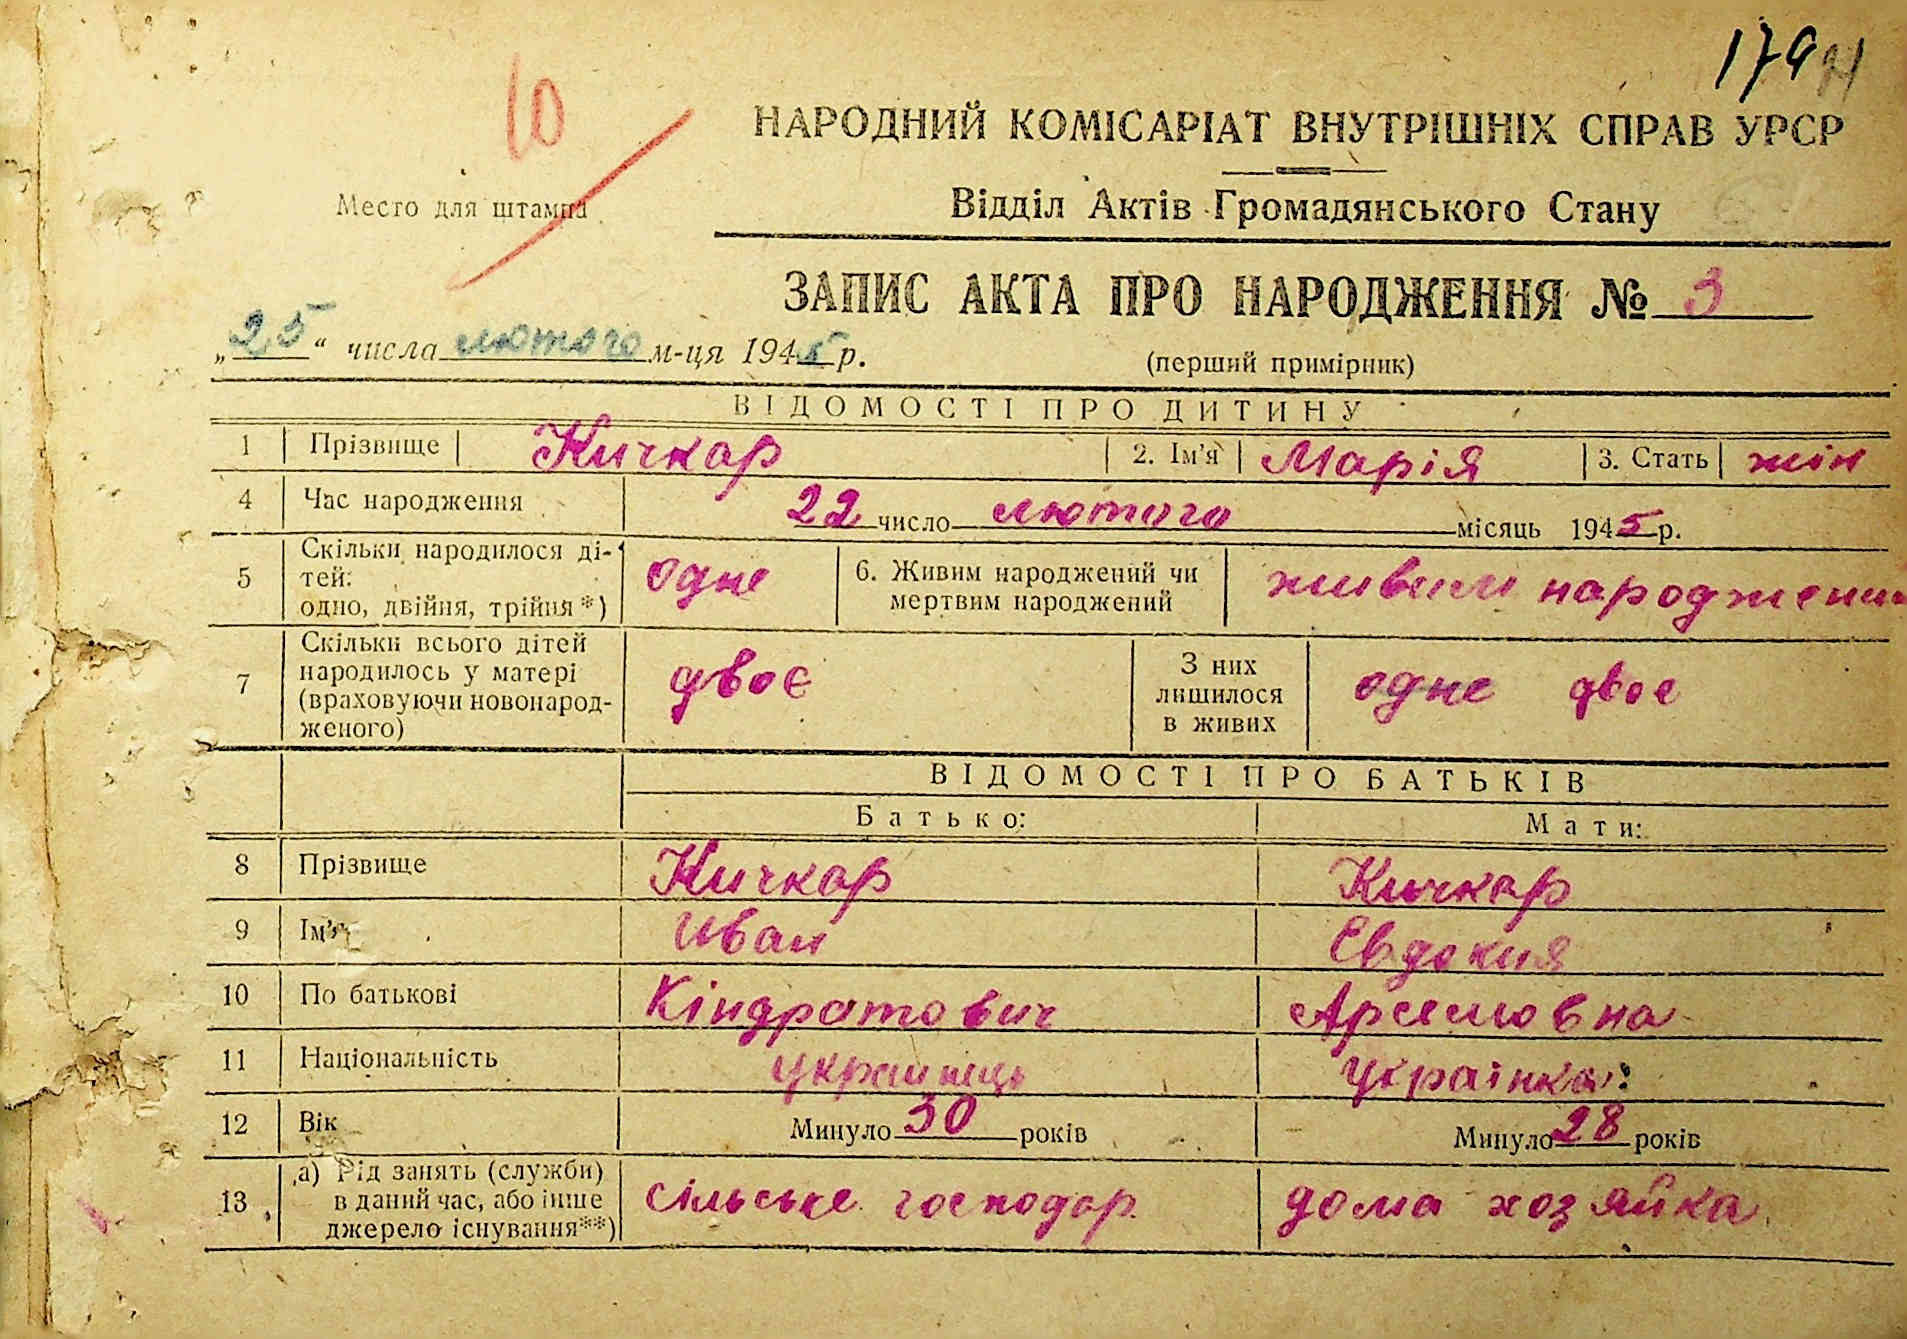 179
10
НАРОДНИЙ КОМІСАРІАТ ВНУТРІШНІХ СПРАВ УРСР
Место для штампа
Відділ Актів Громадянського Стану
ЗАПИС АКТА ПРО НАРОДЖЕННЯ № 3
„25“ числа лютого м-ця 1945 р.
(перший примірник)
ВІДОМОСТІ ПРО ДИТИНУ
1 Прізвище Кичкар 2. Ім'я Марія 3. Стать жін
4 Час народження 22 число лютого місяць 1945 р.
5 Скільки народилося ді-
тей:
одно, двійня, трійня*) одне 6. Живим народжений чи
мертвим народжений живим народжений
7 Скільки всього дітей
народилось у матері
(враховуючи новонарод-
женого) двоє З них
лишилося
в живих одне двоє
ВІДОМОСТІ ПРО БАТЬКІВ
Батько: Мати:
8 Прізвище Кичкар Кичкар
9 Ім'я Иван Евдокия
10 По батькові Кіндратович Арсемовна
11 Національність українець українка
12 Вік Минуло 30 років Минуло 28 років
13 а) Рід занять (служби)
в даний час, або інше
джерело існування**) сільське господар. дома хозяйка